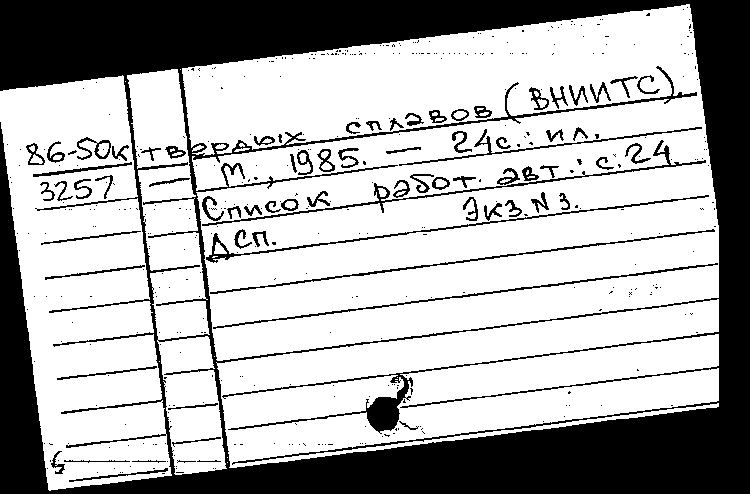 86-50к твердых сплавов (ВНИИТС).
3257 — М., 1985. — 24с.: ил.
Список работ. авт.: с.24.
Экз.N3.
ДСП.